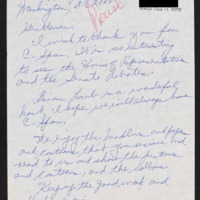 Washington, D.C. 20001
Gentlemen:
I wish to thank you for
C-Span. It is so interesting
to see the House of Representatives
and the Senate debates.
Brian Lamb is a wonderful
host. I hope we will always have
C-Span.
We enjoy the headlines and papers
and cartoons that you receive and
read to us and show the pictures
and cartoons, and the callers.
Keep up the good work and